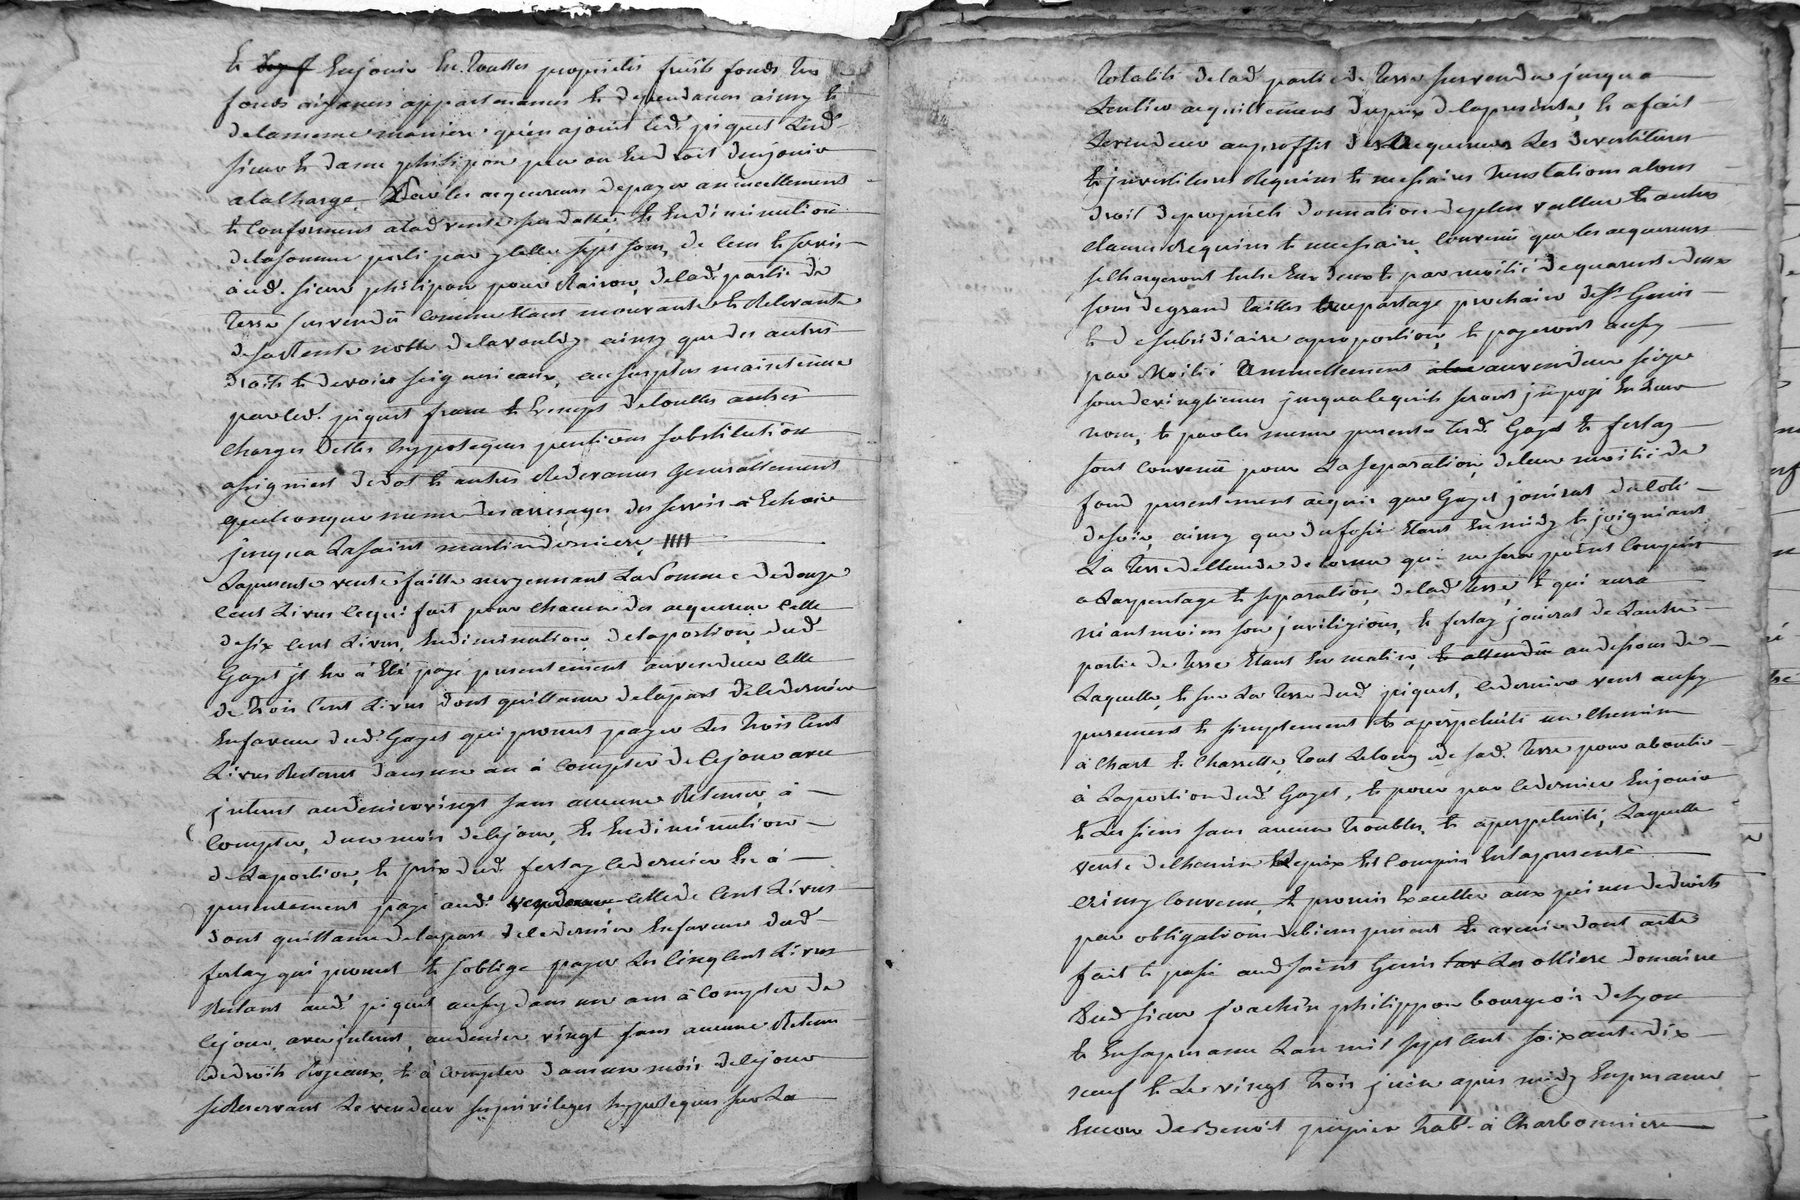 et Enjouir En Touttes proprietés fruits fonds Tres
fonds aizances appartenances et dependances ainsy et
delamême maniere quen ajouit led. piquet Lesd.
sieur et dame philipon peu ou En droit denjouir
alacharge Par les acquereurs depayer annuellement
et Conformement alad vente sus dattée, Et En diminution
delasomme porté par ycelle sept sous, de Cens et servis
aud. sieur philipon pour Raison, delad. partie de
Terre susvendüe Comme Etant mouvante et Relevante
desarente noble delavoulÿ ainsy que des autres
droits et devoirs seigneuriaux, au surplus maintenue
par led. piquet franc et Exempt detouttes autres
Charges Dettes hypoteques pentions substitution
assignient dedot et autres Redevances Generallement
quelconque meme des arrerages des servis a Echoir
jusqua Lasaint martin derniere,
Lapresente vente faitte moyennant La Somme dedouze
Cent Livres lequi fait pour chacun des acquereur Celle
desix Cent Livres, Endiminution delaportion dud.
Gayet jl En à Eté payé presentement auvendeur Celle
de trois Cent Livres dont quittance delapart delcedernier
Enfaveur dud. Gayet qui promet payer Les trois Cent
Livres Restant dans un an à Compter de Cejour avec
jnterest audenier vingt sans aucune Retenue, à
Compter, dun mois decejour, Et En diminution
deLaportion, et prix dud. fertay Cedernier En à
presentement payé aud. vendeur celle de Cent Livres
dont quittance delapart delcedernier Enfaveur dud.
fertay qui promet et soblige payer Les Cinq Cent Livres
Restant aud. piquet aussy dans un an à Compter de
Cejour, avec jnterest, audenier vingt sans aucune Retenue
dedroits Royeaux, et à Compter dans un mois decejour
seReservant Le vendeur ses privileges hypoteques sur La
totalité delad. partie de Terre susvendue jusqua
Lentier acquittement duprix delapresente, Et a fait
Levendeur auproffit des acquereurs Les devestitures
et jnvestitures Requises et necessaires Translations de tous
droit depropriété donnation deplus vallue et autres
clauses Requises et necessaire, Convenu que les acquereurs
sechargeront Entre Eux deux et par moitié dequarente deux
sous degrand tailles aupartage prochain deSt Genis
et desubsidiaire aproportion, et payeront aussy
par Moitié Annuellement auvendeur seize
sous devingtiemes jusqualequils seront jmposé En Leur
nom, et par les meme presentes Lesd. Gayet et fertay
sont Convenu pour Laseparation, deleur moitié de
fond presentement acquis que Gayet jouirat ducoté
desoir, ainsy que dufossé Etant En midy et joignant
La Terre qui ne sera point Compris
a Larpentage et separation, delad. terre, et qui sera
néantmoins, et fertay jouirat deLautre
partie de Terre Etant En matin, et attendu audessous de
Laquelle, et sur La terre dud. piquet, cedernier vent aussy
purement et simplement et aperpetuité un Chemin
à Chart et Charrette, Tout Lelong de sad. Terre pour aboutir
à Laportion dud. Gayet, et pour par Cedernier Enjouir
et Les siens sans aucuns Troubles, et aperpetuité, Laquelle
vente dechemin Leprix Est Compris Enlapresente
Ainsy Convenu, Et promis Executer aux peines dedroits
par obligations debiens present et avenir dont acte
fait et passé aud saint Genis Les ollieres domaine
Dud sieur Joachin philippon bourgeois delyon
et Ensapresence Lan mil sept Cent soixante dix
neuf et Le vingt trois juin apres midy Enpresence
Encor de Benoit habt. à Charbonniere